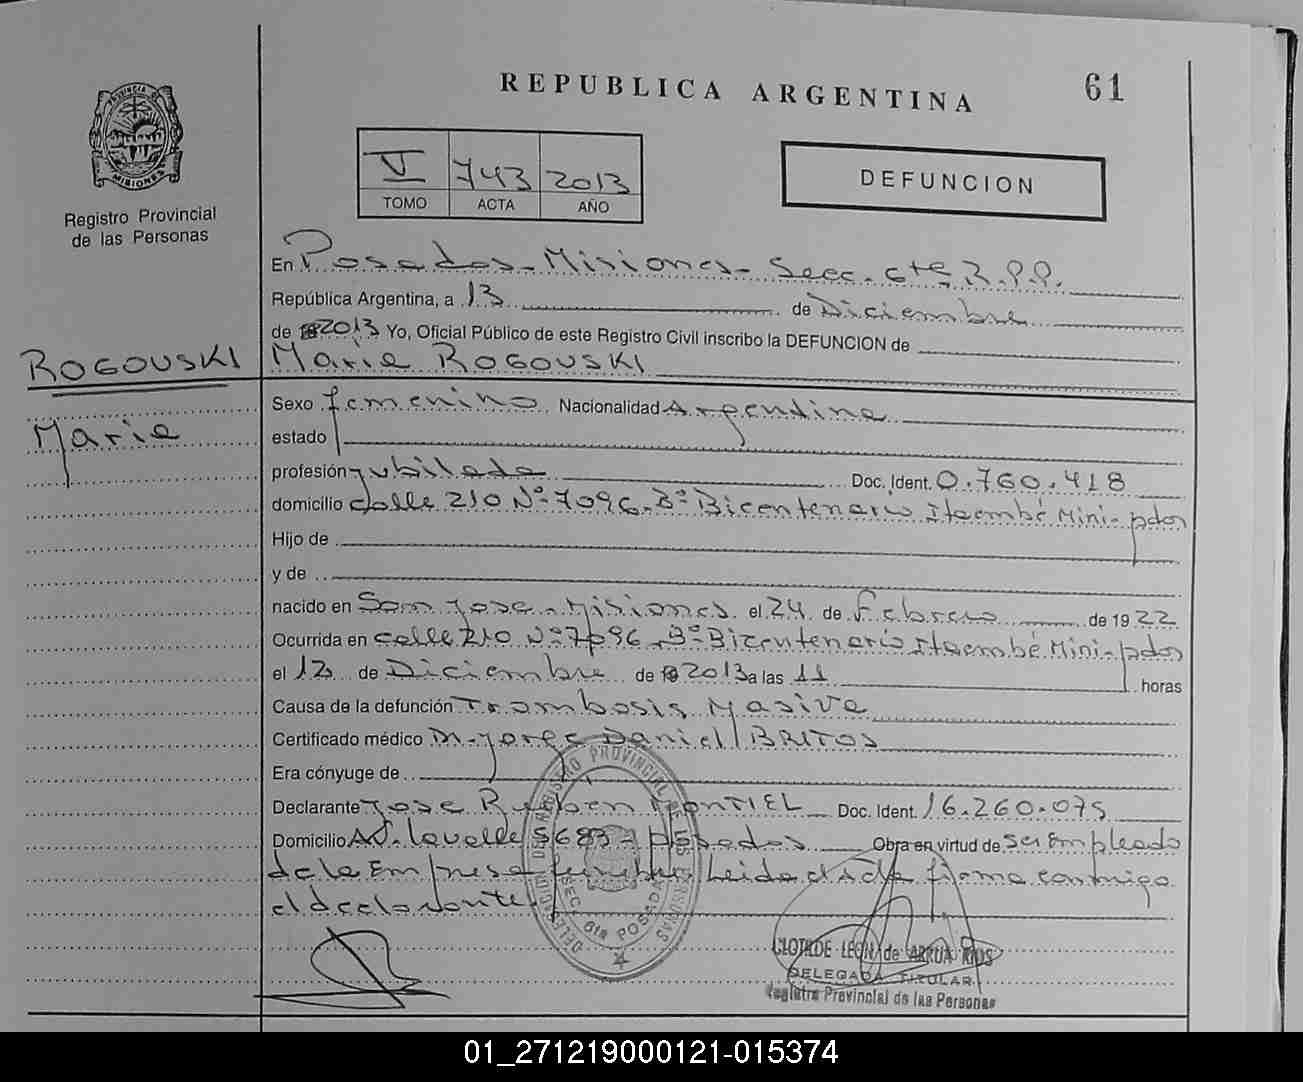 REPUBLICA ARGENTINA
61
PROVINCIA DE
MISIONES
Registro Provincial
de las Personas
V 743 2013
TOMO ACTA AÑO
DEFUNCION
En Posadas-Misiones-Secc. 6ta R.P.P.
República Argentina, a 13 de Diciembre
de 2013 Yo, Oficial Público de este Registro Civil inscribo la DEFUNCION de
ROGOUSKI
Maria ROGOUSKI
Maria
Sexo femenino Nacionalidad Argentina
estado
profesión jubilada Doc. Ident. 0.760.418
domicilio calle 210 Nº 7096-Bº Bicentenario Itaembé Mini-pdas
Hijo de
y de
nacido en San Jose-Misiones el 24 de Febrero de 1922
Ocurrida en calle 210 Nº 7096-Bº Bicentenario Itaembé Mini-pdas
el 12 de Diciembre de 2013 a las 11 horas
Causa de la defunción Trombosis Masiva
Certificado médico Dr. Jorge Daniel BRITOS
Era cónyuge de
Declarante Jose Ruben MONTIEL Doc. Ident. 16.260.075
Domicilio Av. Lavalle 5683-posadas Obra en virtud de ser Empleado
de la Empresa funebre. Leida el acta firma conmigo
el declarante
DELEGACION DEL REGISTRO PROVINCIAL DE LAS PERSONAS
SEC. 6ta POSADAS
CLOTILDE LEON de ARRUA RIOS
DELEGADA TITULAR
Registro Provincial de las Personas
01_271219000121-015374